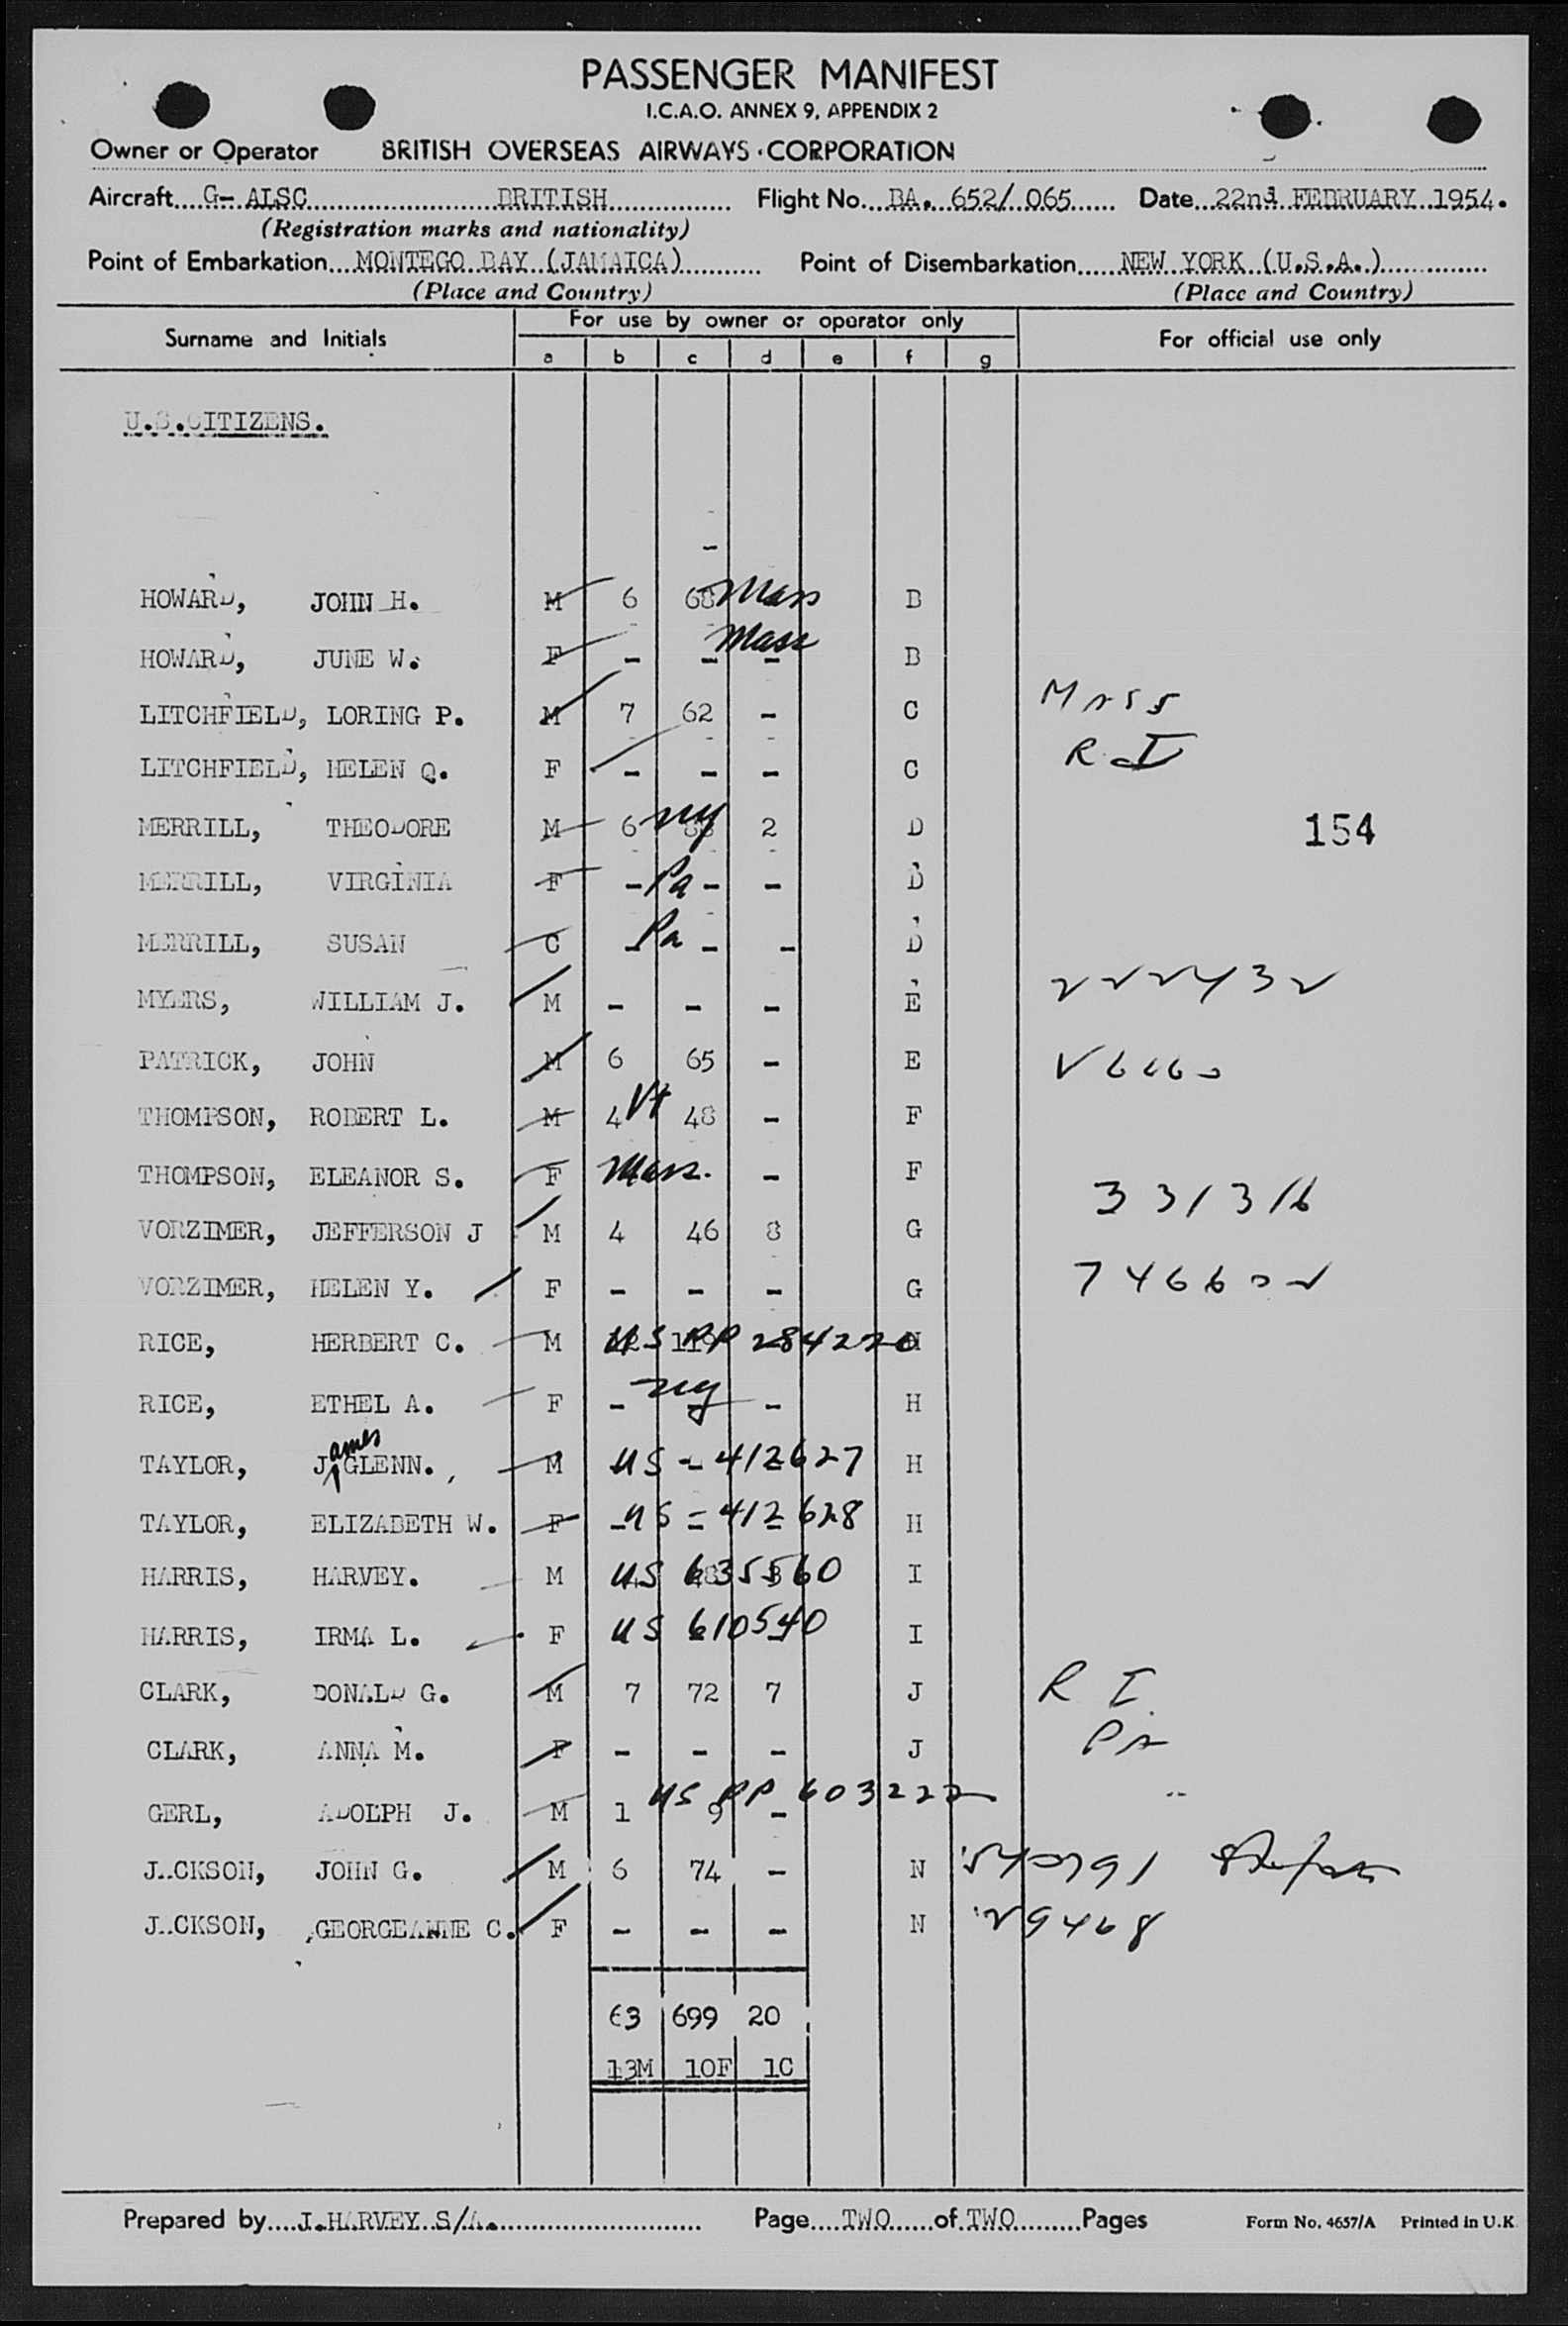 PASSENGER MANIFEST
I.C.A.O. ANNEX 9, APPENDIX 2
Owner or Operator BRITISH OVERSEAS AIRWAYS CORPORATION
Aircraft G- ALSC BRITISH Flight No. BA. 652/ 065 Date 22nd FEBRUARY 1954.
(Registration marks and nationality)
Point of Embarkation MONTEGO BAY (JAMAICA) Point of Disembarkation NEW YORK (U.S.A.)
(Place and Country) (Place and Country)
For use by owner or operator only
Surname and Initials For official use only
a b c d e f g
U.S.CITIZENS.
HOWARD, JOHN H. M 6 68 Mass B
HOWARD, JUNE W. F - - - Mass B
LITCHFIELD, LORING P. M 7 62 - C Mass
LITCHFIELD, HELEN Q. F - - - C R.I
MERRILL, THEODORE M 6 ny 2 D 154
MERRILL, VIRGINIA F - Pa - - D
MERRILL, SUSAN C - Pa - - D
MYERS, WILLIAM J. M - - - E 222432
PATRICK, JOHN M 6 65 - E
THOMPSON, ROBERT L. M 4 Vt 48 - F
THOMPSON, ELEANOR S. F Mass. - F
331316
VORZIMER, JEFFERSON J M 4 46 8 G
VORZIMER, HELEN Y. F - - - G 746602
RICE, HERBERT C. M US PP 284220 H
RICE, ETHEL A. F - ny - - H
ames
TAYLOR, J GLENN. M US - 412627 H
TAYLOR, ELIZABETH W. F US - 412628 H
HARRIS, HARVEY. M US 635560 I
HARRIS, IRMA L. F US 610540 I
CLARK, DONALD G. M 7 72 7 J R I
CLARK, ANNA M. F - - - J Pa
US PP 603222
GERL, ADOLPH J. M 1 9 -
JACKSON, JOHN G. M 6 74 - N
JACKSON, GEORGEANNE C. F - - - N 29468
63 699 20
13M 10F 1C
Prepared by J.HARVEY S/A. Page TWO of TWO Pages Form No. 4657/A Printed in U.K